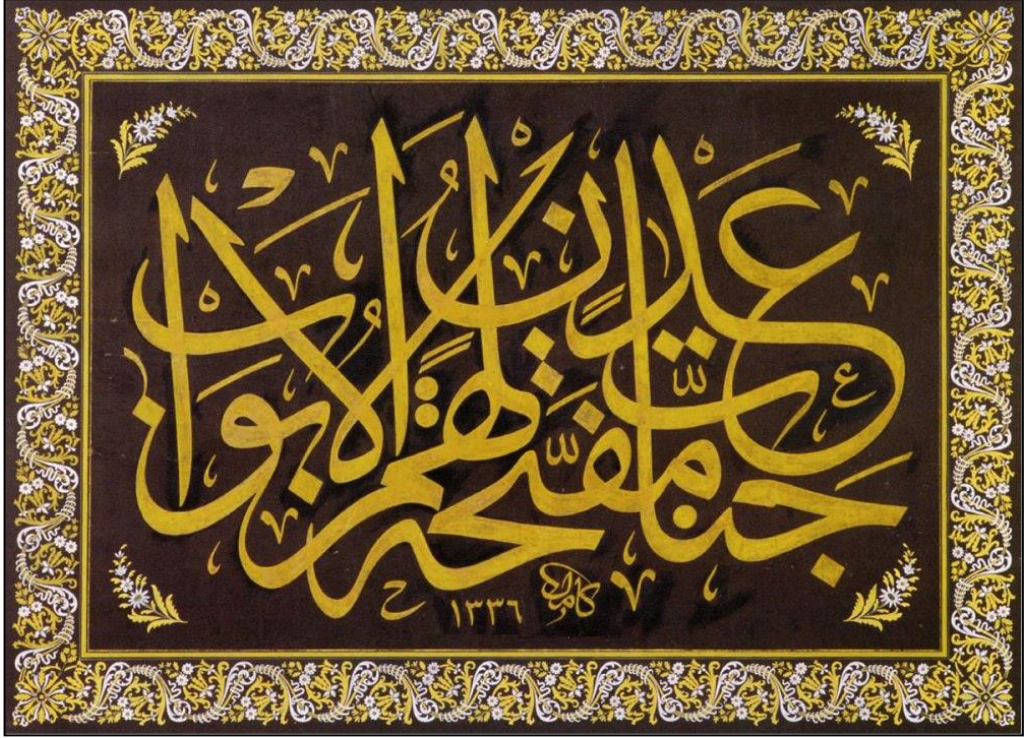 جَنَّاتِ عَدْنٍ مُفَتَّحَةً لَهُمُ الْأَبْوَابُ
كامل ١٣٣٦